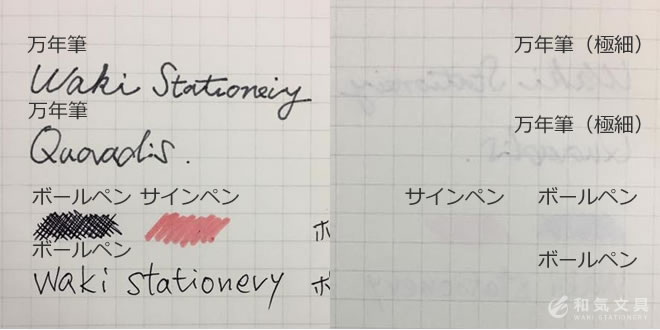 万年筆
Waki Stationery
万年筆
Quovadis.
ボールペン サインペン
ボールペン
waki stationery
ボ
ボ
万年筆（極細）
万年筆（極細）
サインペン ボールペン
ボールペン
和気文具
WAKI STATIONERY